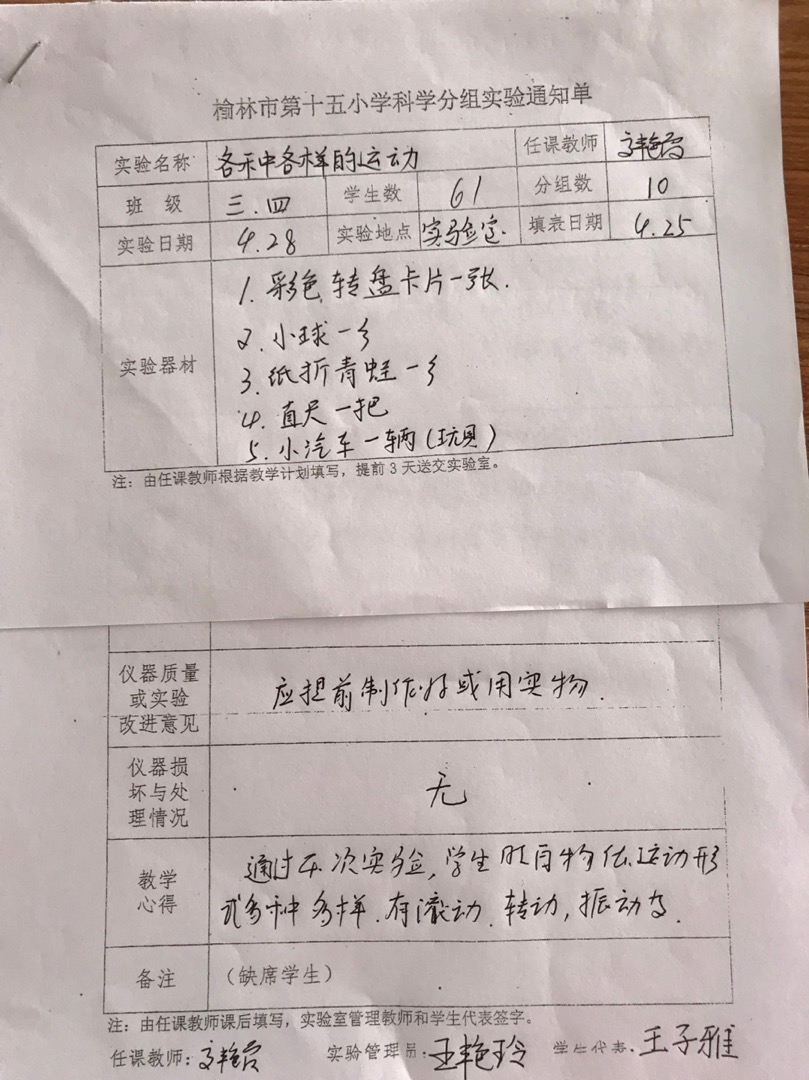 榆林市第十五小学科学分组实验通知单
实验名称 各种各样的运动 任课教师
班 级 三.四 学生数 61 分组数 10
实验日期 4.28 实验地点 实验室 填表日期 4.25
实验器材
1. 彩色转盘卡片一张.
2. 小球一个
3. 纸折青蛙一个
4. 直尺一把
5. 小汽车一辆(玩具)
注：由任课教师根据教学计划填写，提前 3 天送交实验室。
仪器质量
或实验
改进意见
应提前制作好或用实物.
仪器损
坏与处
理情况
无
教学
心得
通过本次实验,学生明白物体运动形
式多种多样.有滚动.转动,振动等.
备注 （缺席学生）
注：由任课教师课后填写，实验室管理教师和学生代表签字。
任课教师: 实验管理员:王艳玲 学生代表:王子雅